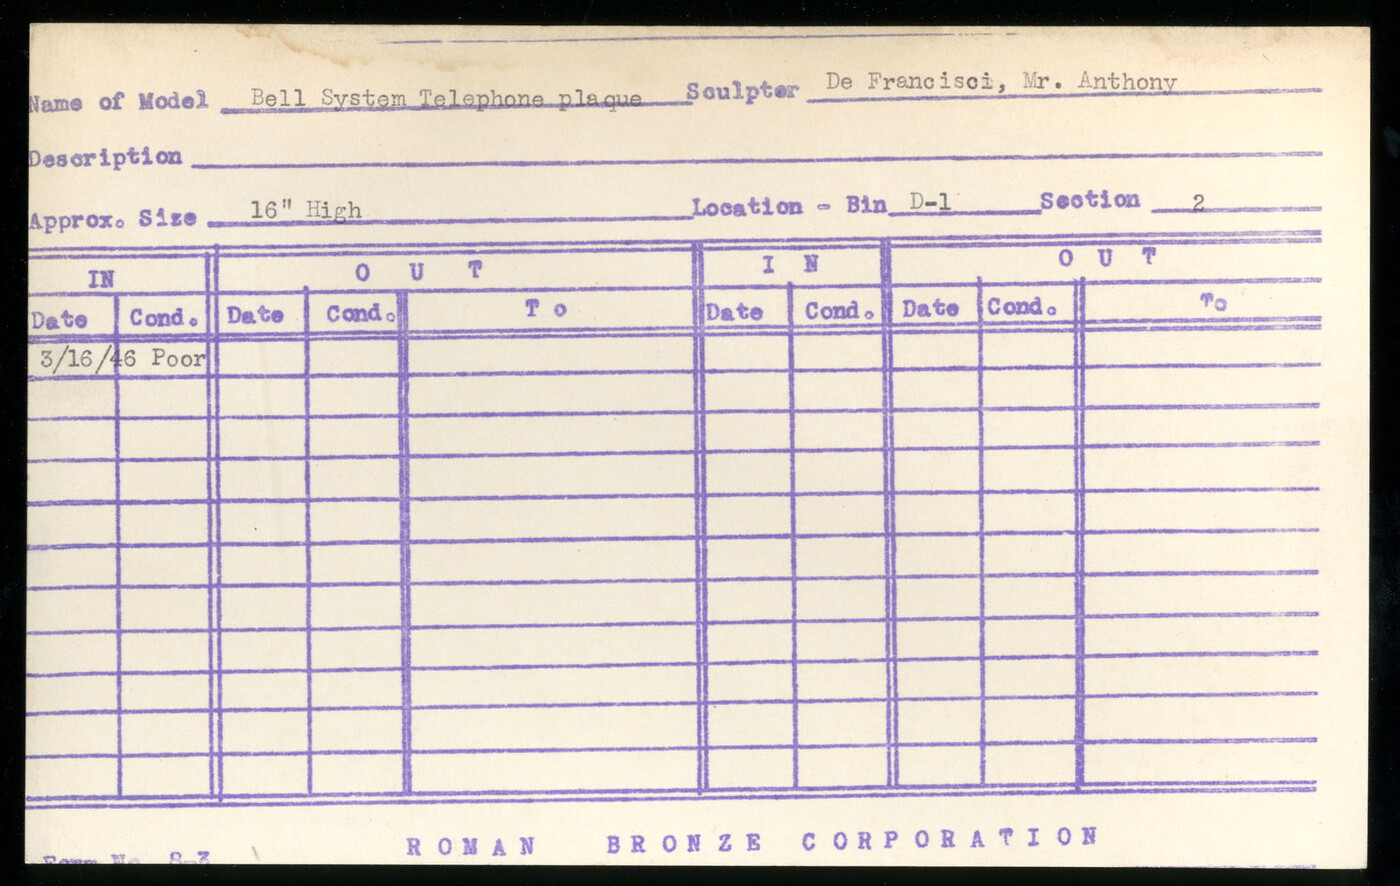 Name of Model Bell System Telephone plaque Sculptor De Francisci, Mr. Anthony
Description
Approx. Size 16" High Location - Bin D-1 Section 2
IN OUT IN OUT
Date Cond. Date Cond. To Date Cond. Date Cond. To
3/16/46 Poor
Form No. S-3 ROMAN BRONZE CORPORATION